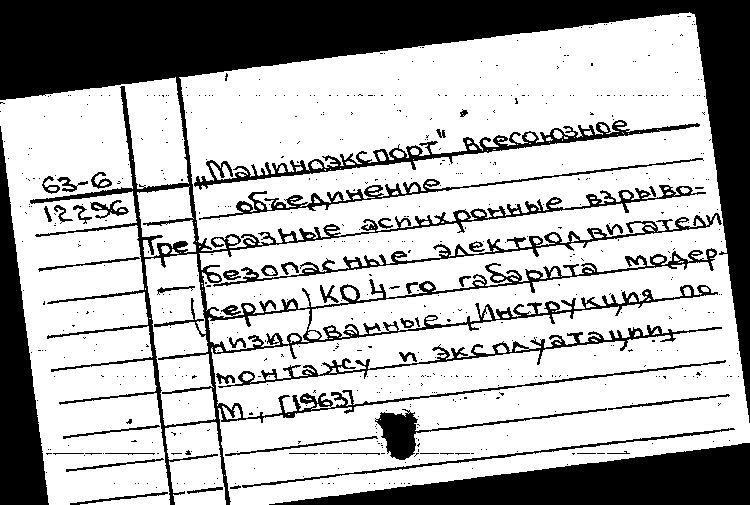 63-6 „Машиноэкспорт", всесоюзное
12296 объединение.
Трехфазные асинхронные взрыво=
безопасные электродвигатели
(серии) КО 4-го габарита модер-
низированные. [Инструкция по
монтажу и эксплуатации,
М., [1963]